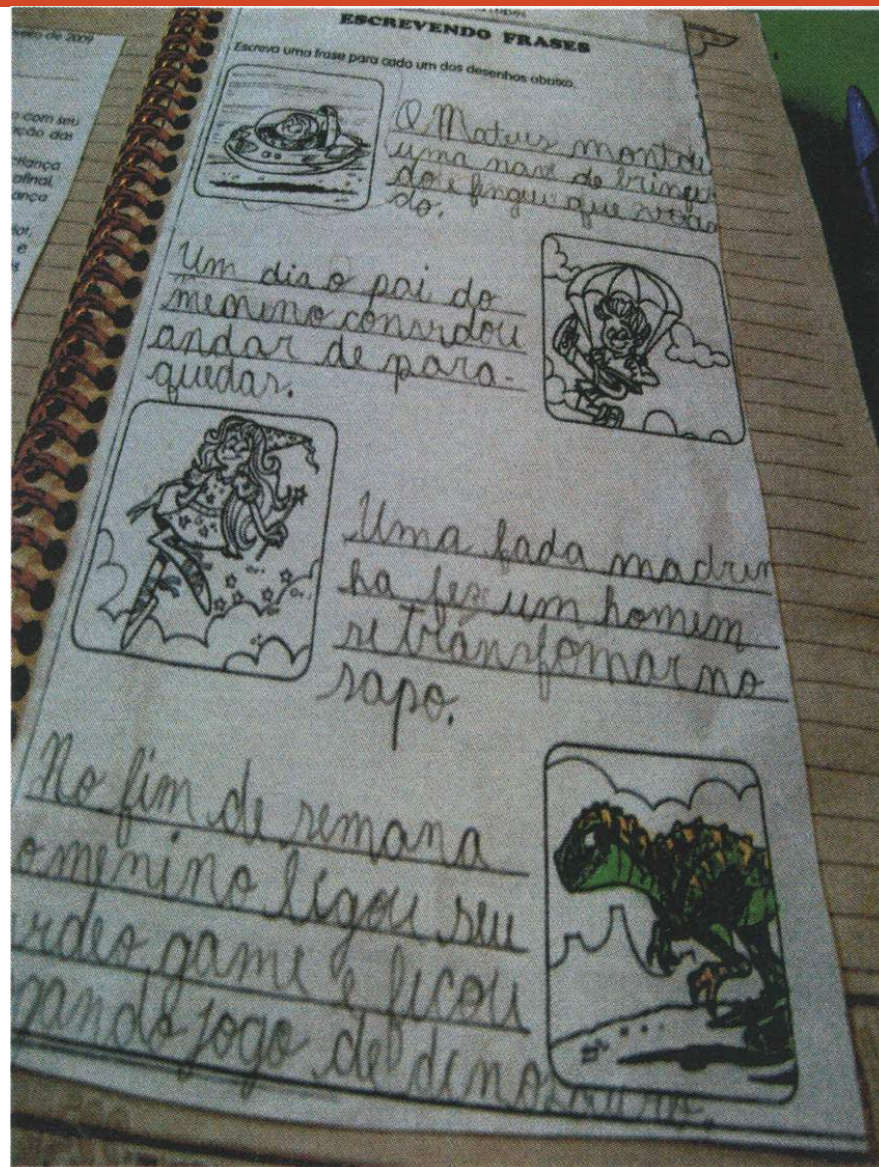 ESCREVENDO FRASES
Escreva uma frase para cada um dos desenhos abaixo.
de 2009
com seu
ação das
criança
afinal,
ança
e
O Mateus montou
uma nave de brinque
do e fingiu que
do.
Um dia o pai do
menino convidou
andar de para-
quedas.
Uma fada madrin
ha fez um homem
se transfomar no
sapo.
No fim de semana
o menino ligou seu
video game e ficou
gando jogo de